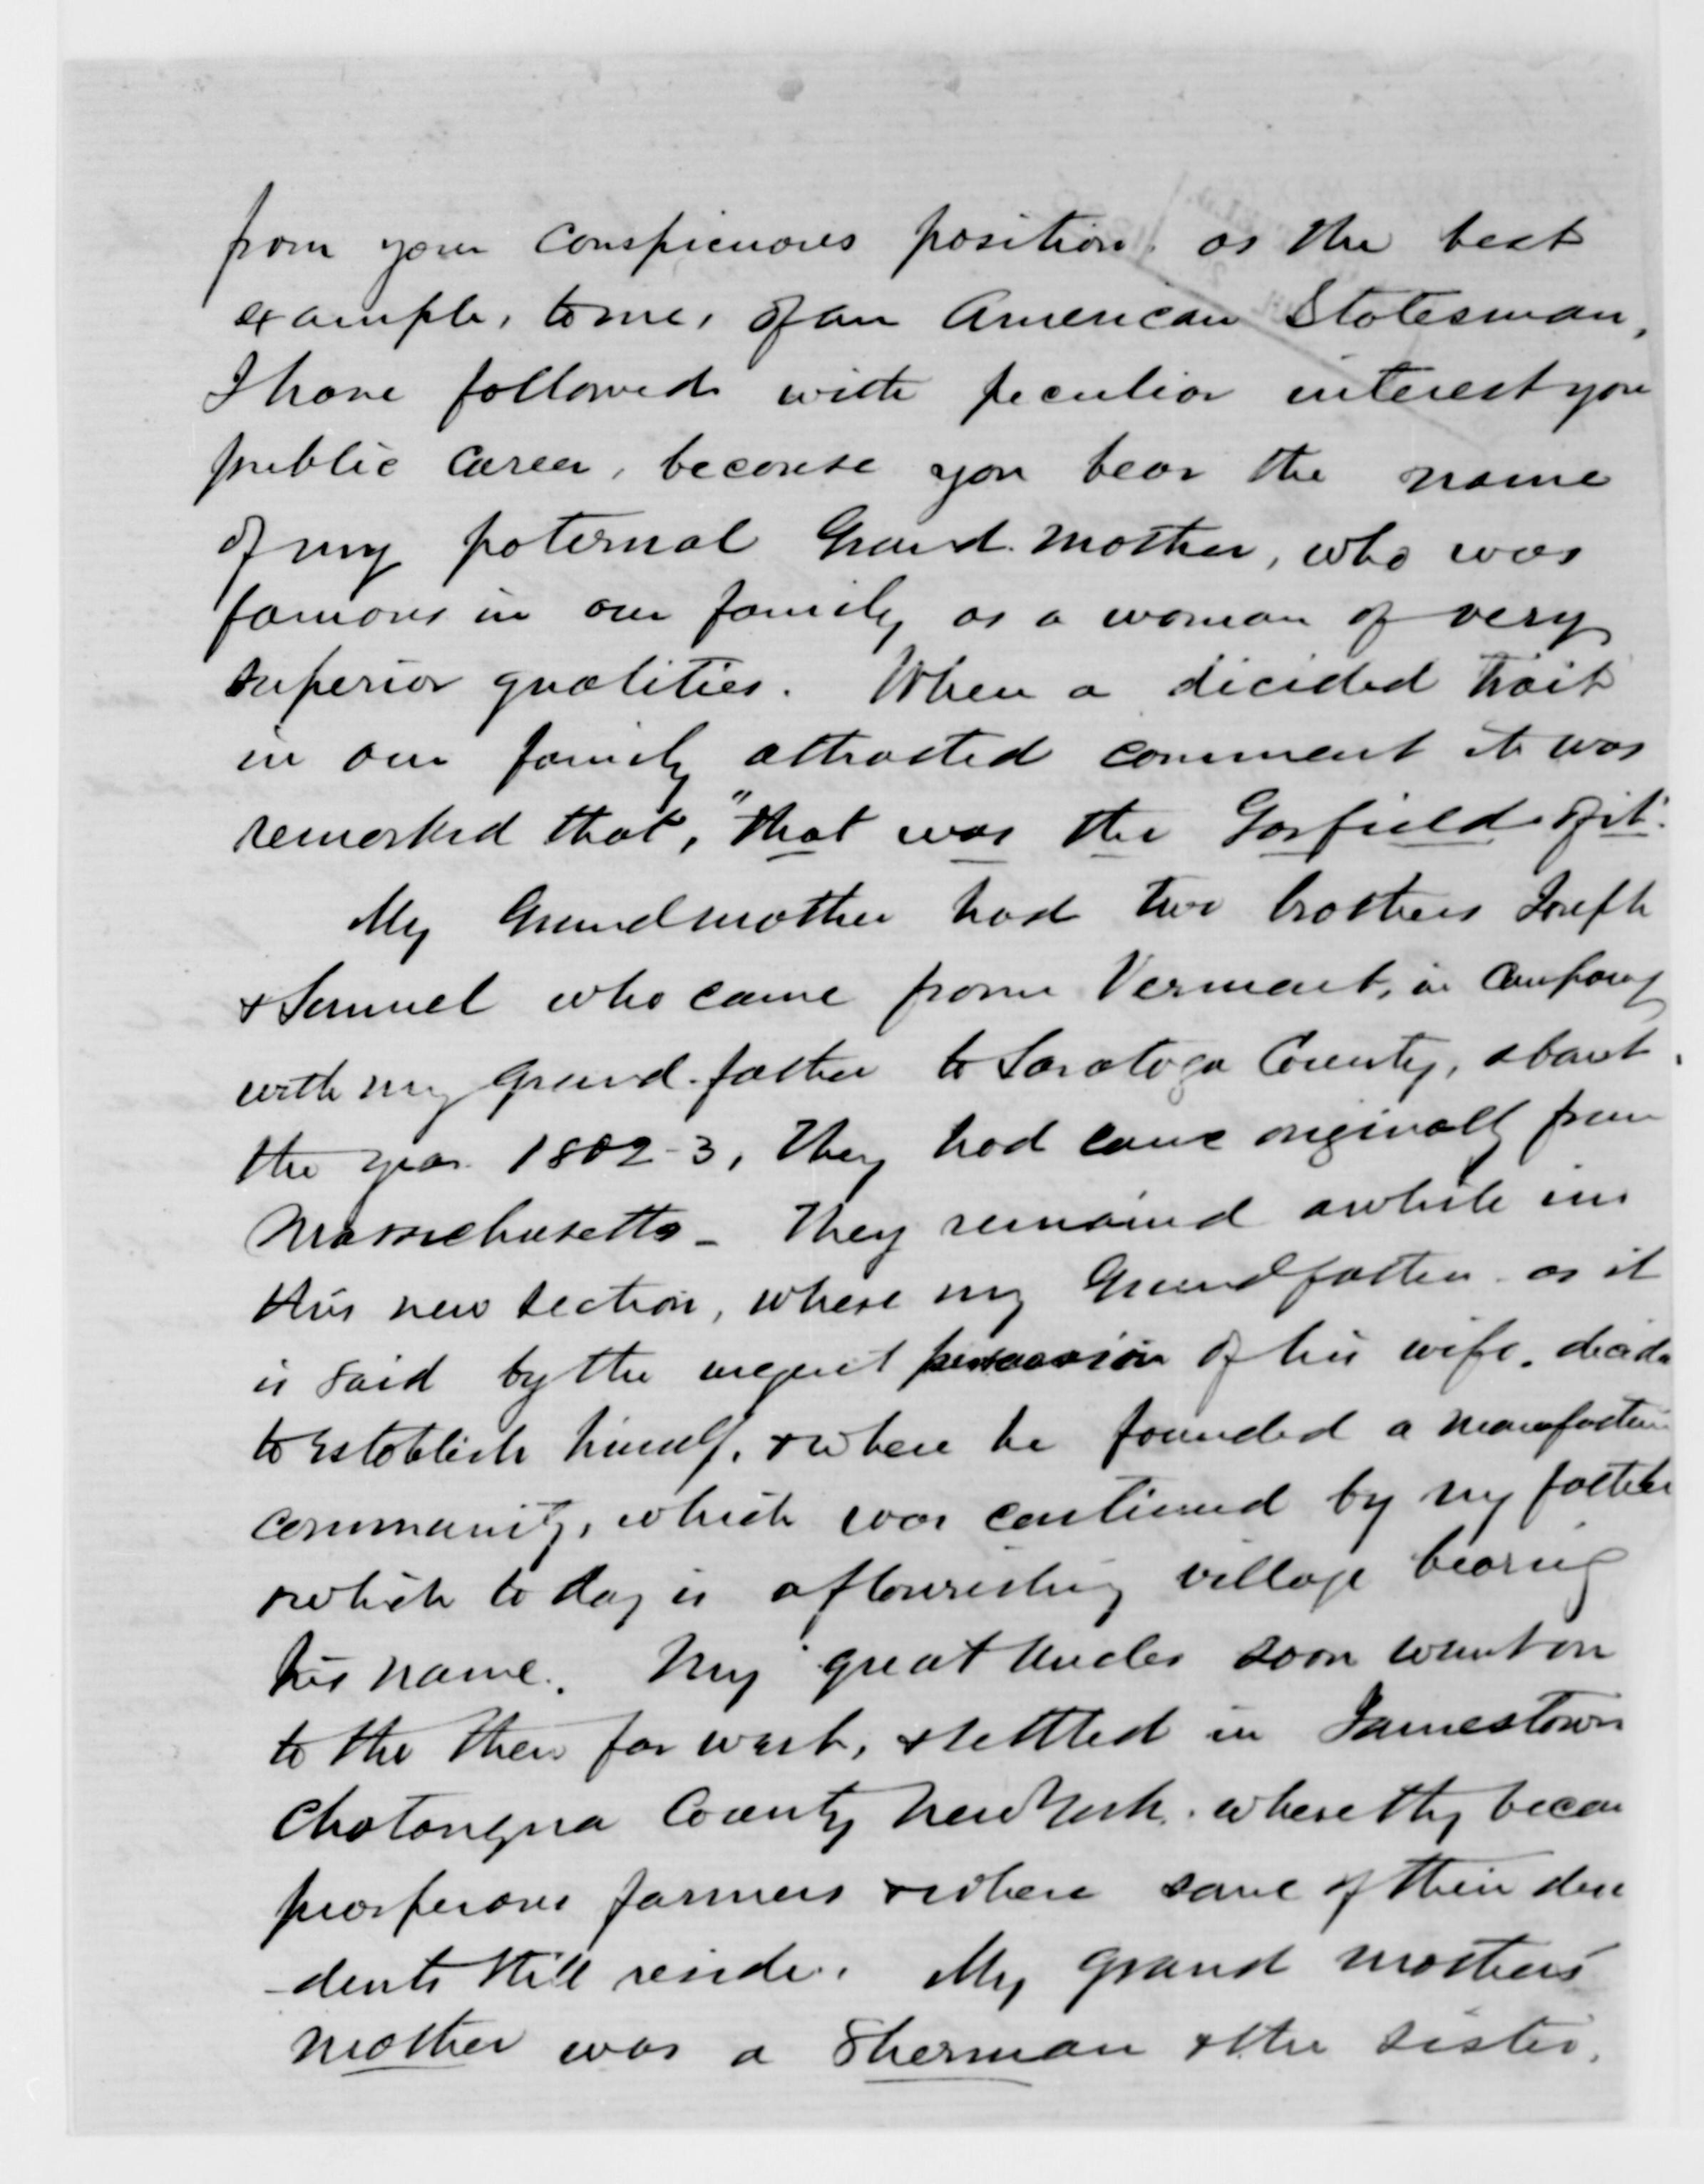 from your conspicuous position as the best
example, to me, of an American Statesman,
I have followed with peculiar interest you
public career, because you bear the name
of my paternal Grand-mother, who was
famous in our family as a woman of very
superior qualities. When a dicided trait
in our family attracted comment it was
remarked that, "that was the Garfield of it".
My Grandmother had two brothers Joseph
& Samuel who came from Vermont, in company
with my Grand-father to Saratoga County, about
the year 1802-3, they had come originally from
Massachusetts - They remained awhile in
this new section, where my Grandfather as it
is said by the urgent persuasion of his wife, decide
to establish himself, & where he founded a manufacturi
community, which was continued by my father
& which to day is a flourishing village bearing
his name. My great Uncles soon went on
to the then far west, & settled in Jamestown
Chatauqua County New York. where they becam
prosperous farmers & where some of their desc
-dents still reside. My grand mother's
mother was a Sherman & the sister,